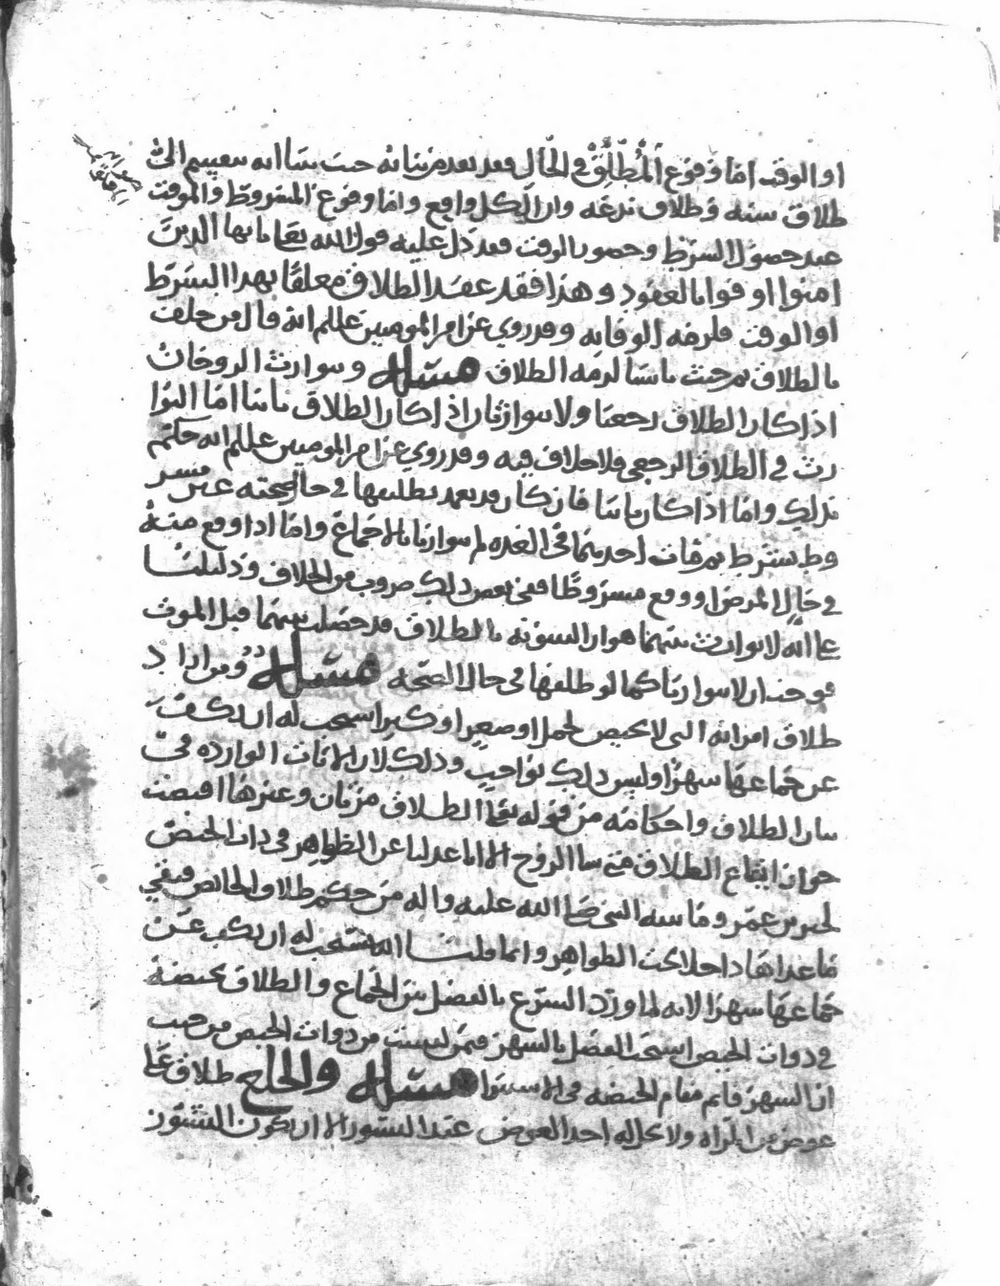 او الوقت اما وقوع المطلق في الحال فقد بعد من بيانه حيث بينا انه ينقسم الى
طلاق سنه وطلاق بدعه وان الكل واقع واما وقوع المشروط والموقت
عند حصول الشرط وحصور الوقت فقد دل عليه قول الله تعا ياايها الذين
امنوا اوفوا بالعقود وهذا فقد عقد الطلاق معلقا بهذا الشرط
او الوقت فلزمه الوفا به وقد روي عن امير المومنين عللم انه قال من حلف
بالطلاق ثم حنث ناسيا لزمه الطلاق مسئله ويتوارث الزوجان
اذا كان الطلاق رجعيا ولا يتوارثان اذا كان الطلاق باينا اما التوا
رث في الطلاق الرجعي فلا خلاف فيه وقد روي عن امير المومنين عللم انه حكم
بذلك واما اذا كان باينا فان كان قد بعد تطليقها في حال صحته غير مشر
وط بشرط ثم مات احدهما في العده لم يتوارثا بالاجماع واما اذا وقع منه
في حال المرض او وقع مشروطا ففي بعض ذلك ضروب من الخلاف ودليلنا
على انه لا توارث بينهما هو ان البينونه بالطلاق قد حصلت بينهما قبل الموت
فوجب ان لا يتوارثا كما لو طلقها في حال الصحه مسئله ومن اراد
طلاق امراته التي لا تحيض لحمل او صغر او كبر استحب له ان يكف
عن جماعها شهرا وليس ذلك بواجب وذلك لان الايات الوارده في
بيان الطلاق واحكامه من قوله تعا الطلاق مرتان وغيرها اقتضت
جواز ايقاع الطلاق متى شا الزوج الا انا عدلنا عن الظواهر في ذات الحيض
لخبر بن عمر وما بينه النبي صلى الله عليه واله من حكم طلاق الحائض فبقي
ما عداها داخلا تحت الظواهر وانما قلنا انه يستحب له ان يكف عن
جماعها شهرا لانه لما ورد الشرع بالفصل بين الجماع والطلاق بحيضه
في ذوات الحيض استحب الفصل بالشهر فيمن ليست من ذوات الحيض من حيث
ان الشهر قائم مقام الحيضه في الاستبرا مسئله والخلع طلاق على
عوض من المراه ولا يحل له اخذ العوض عند النشوز الا ان يكون النشوز